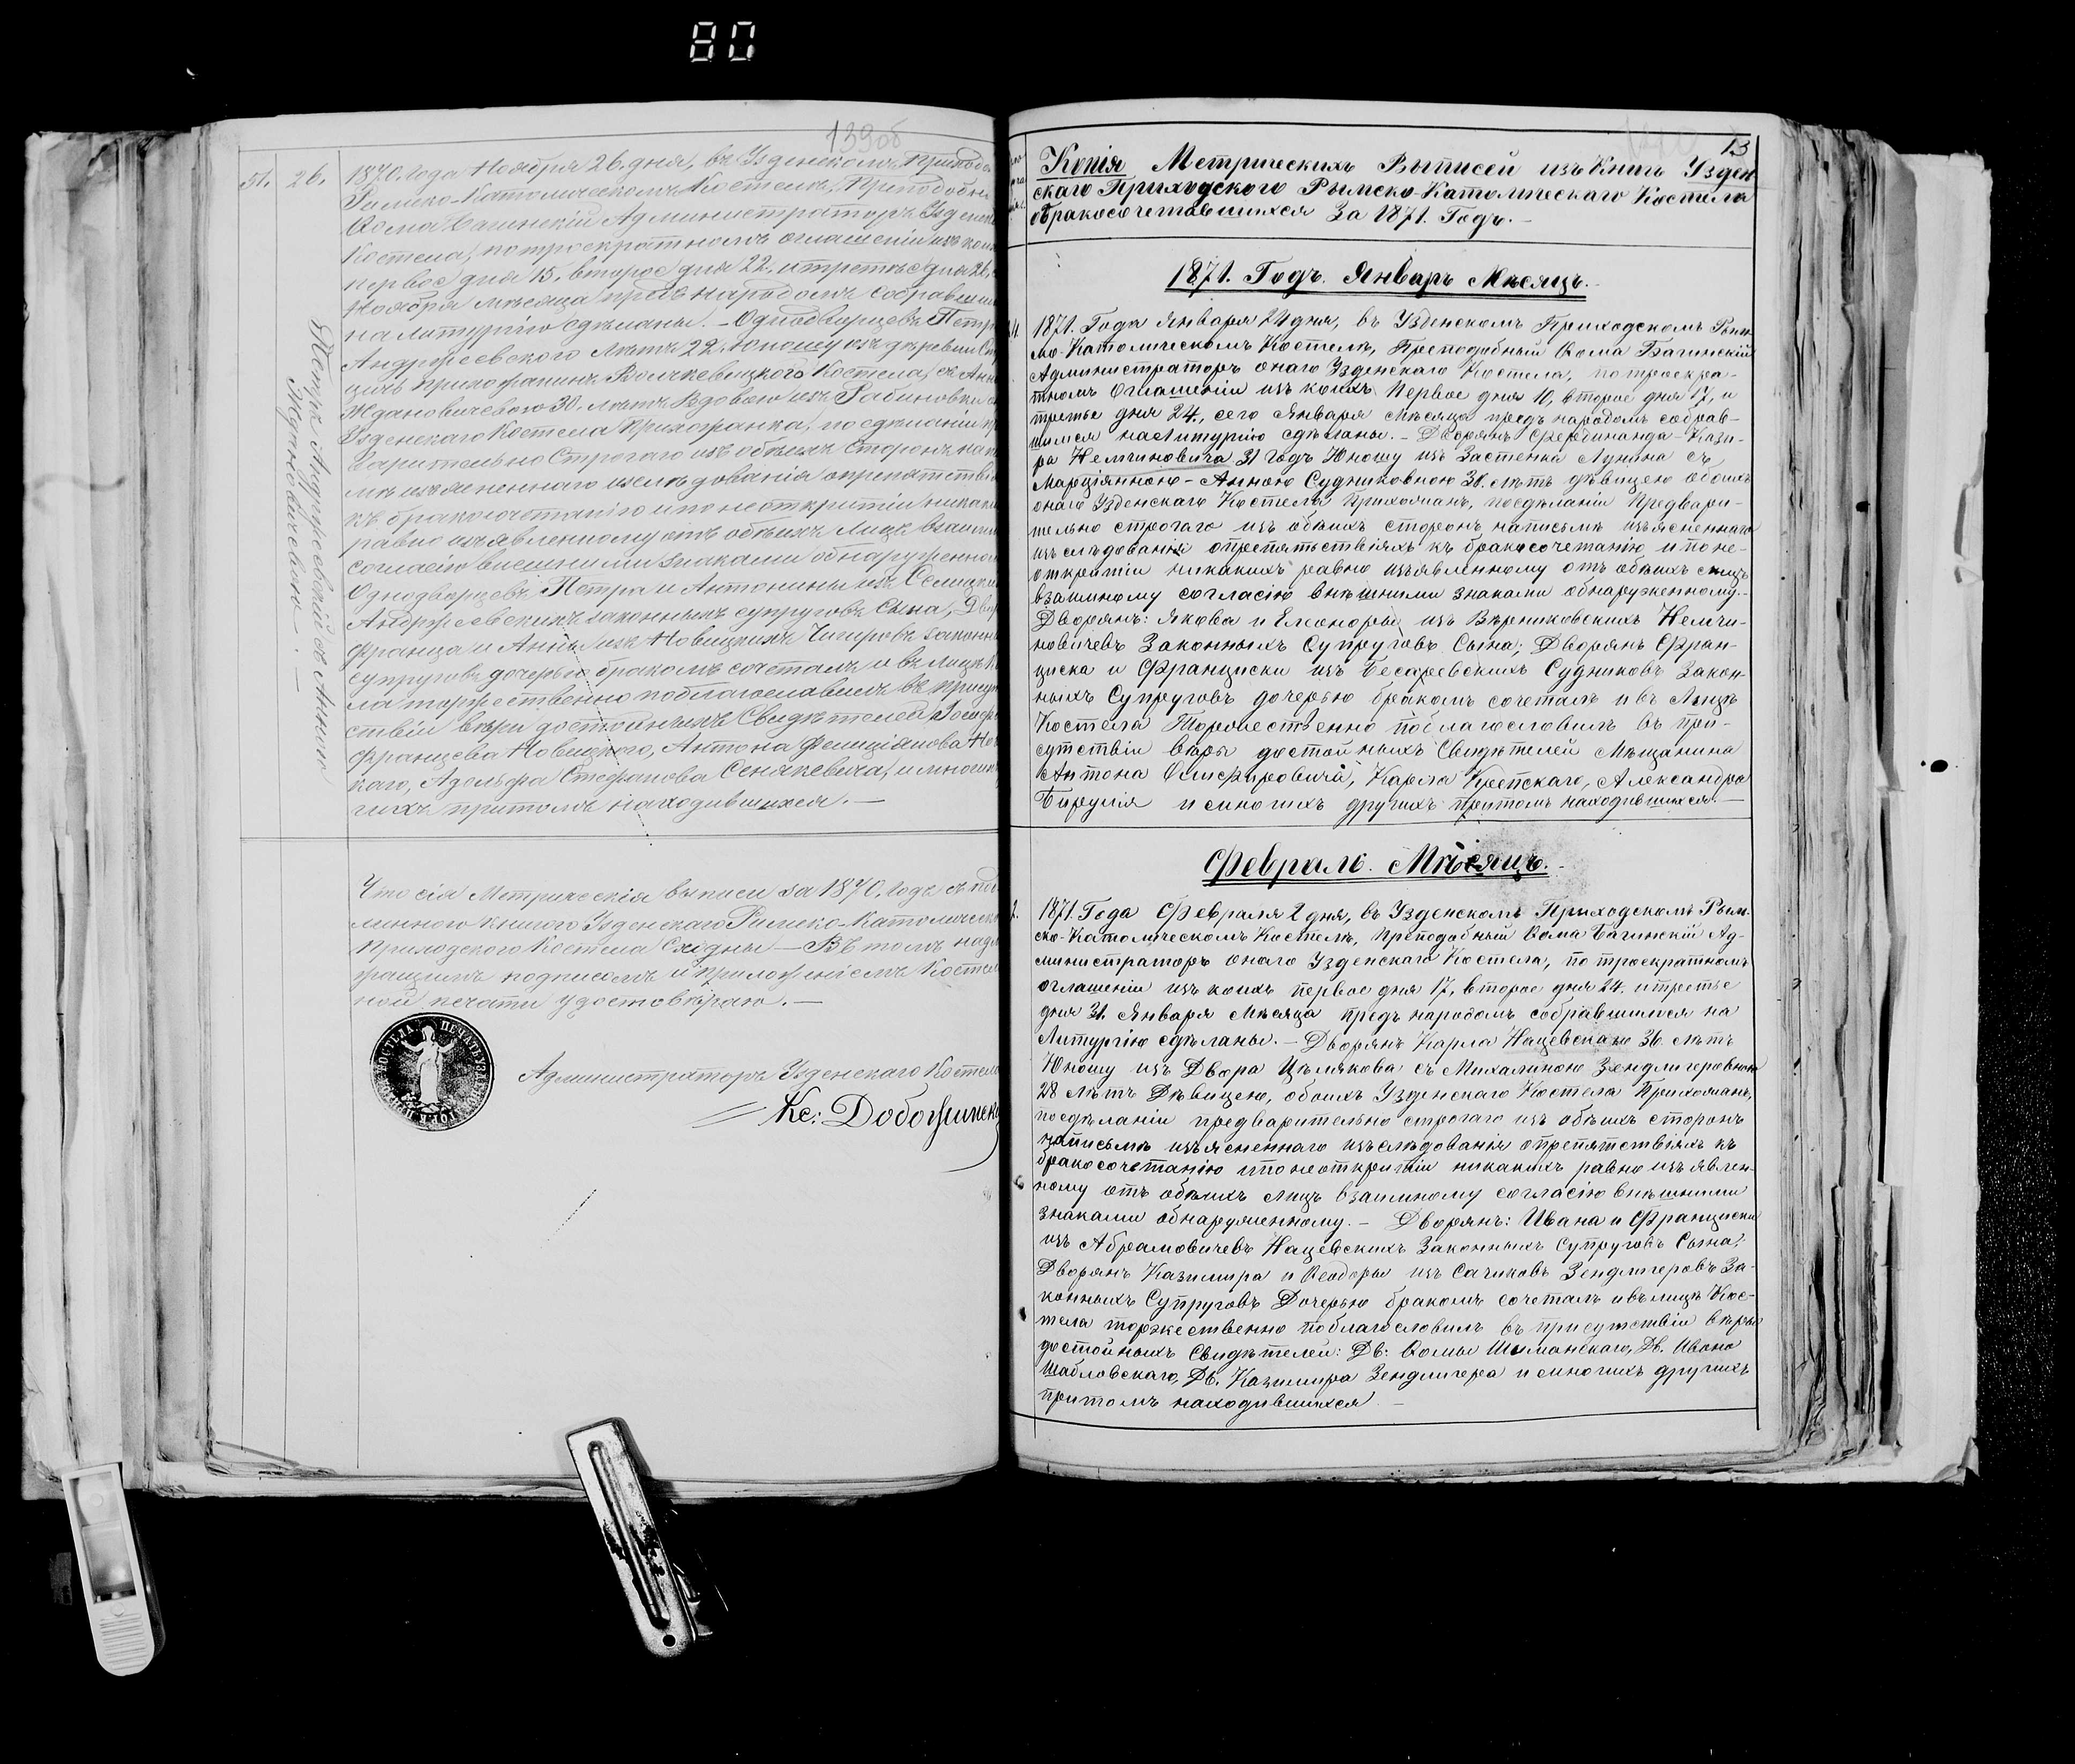 80
139об
51. 26.
1870. Года Ноября 26. дня, въ Узденскомъ Приходс
Римско-Католическомъ Костелѣ, Приподобны
Ѳома Администраторъ Узденск
Костела, по троекратномъ оглашеніи изъ коих
первое дня 15, второе дня 22, и третье дня 26,
Ноября мѣсяца предъ народомъ собравшим
на литургію сдѣланы. — Однодворцевъ Петр
Андржеевского лѣтъ 22. Юношу изъ деревни
прихожанинъ Костела, съ Анн
Ждановичевою 30. лѣтъ Вдовою изъ Рабиновки
Узденскаго Костела Прихожанка, по сдѣланіи пр
варительно Строгаго изъ обѣихъ Сторонъ на пи
мѣ изъясненнаго изслѣдованія опрепятствія
къ бракосочетанію и по не открытіи никаки
равно изъявленному отъ обѣихъ Лицъ взаимн
согласію внешними знаками обнаруженном
Однодворцевъ Петра и Антонины изъ
Андржеевскихъ законныхъ супруговъ Сына, Двор
Франца и Анны изъ Новицкихъ Чигировъ законны
супруговъ дочерью бракомъ сочеталъ и въ лицѣ К
ла торжественно поблагославилъ въ присут
ствіи вѣри достойныхъ Свидѣтелей Іосифа
Францева Новицкого, Антона Фелиціянова Но
каго, Адольфа Стефанова Сенякевича, и многих
гихъ притомъ находившихся. —
Петръ Андржеевскій съ Анною
Ждановичевою. —
Что сія Метрическія выписи за 1870. годъ съ под
линною книгою Узденскаго Римско-Католическ
Приходского Костела Сходны — Въ томъ надл
жащимъ подписомъ и приложеніемъ Костел
ной печати удостовѣряю. —
Администраторъ Узденскаго Костела
Кс:
13
Копія Метрическихъ Выписей изъ Книгъ Узден
скаго Приходского Рымско-Католическаго Костела
обракосочетавшихся За 1871. Годъ. —
1871. Годъ. Январь Мѣсяцъ. —
1871. Года Января 24 дня, въ Узденскомъ Приходскомъ Рым-
ско-Католическомъ Костелѣ, Преподобный Ѳома Багинскій
Администраторъ онаго Узденскаго Костела, по троекра-
тномъ Оглашеніи изъ коихъ Первое дня 10, второе дня 17, и
третье дня 24., сего Января Мѣсяца предъ народомъ собрав-
шимся на Литургію сдѣланы. — Дворянъ Фердинанда-Кази-
ра Немчиновича 31 годъ Юношу изъ Застенка Лунина съ
Марціянною-Анною Судниковною 30. лѣтъ дѣвицею обоихъ
онаго Узденскаго Костела Прихожанъ, посдѣланіи Предвари-
тельно строгаго изъ обѣихъ сторонъ написьмѣ изъясненнаго
изъслѣдованія опрепятьствіяхъ къ бракосочетанію и по не-
открытіи никакихъ равно изъявленному отъ обѣихъ лицъ
взаимному согласію внѣшними знаками обнаруженному. —
Дворянъ: Якова и Елеоноры изъ Вѣрниковскихъ Немчи-
новичевъ Законныхъ Супруговъ Сына; Дворянъ Фран-
циска и Франциски изъ Судниковъ Закон-
ныхъ Супруговъ дочерью бракомъ сочеталъ и въ Лицѣ
Костела Торжественно поблагословилъ въ при-
сутствіи вѣры достойныхъ Свидѣтелей Мѣщанина
Антона Карла Александра
и многихъ другихъ притомъ находившихся. —
Февраль. Мѣсяцъ. —
1871. Года Февраля 2 дня, въ Узденскомъ Приходскомъ Рым-
ско-Католическомъ Костелѣ, преподобный Ѳома Багинскій Ад-
министраторъ онаго Узденскаго Костела, по троекратномъ
оглашеніи изъ коихъ первое дня 17, второе дня 24. и третье
дня 31. Января Мѣсяца предъ народомъ собравшимся на
Литургію сдѣланы. — Дворянъ Карла Нацевскаго 36 лѣтъ
Юношу изъ Двора Цѣлякова съ Михалиною Зендлигеровною
28 лѣтъ Дѣвицею, обоихъ Узденскаго Костела Прихожанъ,
посдѣланіи предварительно строгаго изъ обѣихъ сторонъ
написьмѣ изъясненнаго изъслѣдованія опрепятствіяхъ къ
бракосочетанію и по неоткрытіи никакихъ равно изъявлен-
ному отъ обѣихъ лицъ взаимному согласію внѣшними
знаками обнаруженному. — Дворянъ: Ивана и Франциски
изъ Абрамовичевъ Нацевскихъ Законныхъ Супруговъ Сына;
Дворянъ Казимира и Ѳеодоры изъ Сачиковъ Зендлигеровъ За-
конныхъ Супруговъ Дочерью бракомъ сочеталъ и въ лицѣ Кос-
тела торжественно поблагословилъ въ присутствіи вѣры
достойныхъ Свидѣтелей: Дв: Ѳомы Шиманскаго, Дв. Ивана
Шабловскаго, Дв. Казимира Зендлигера и многихъ другихъ
притомъ находившихся. —